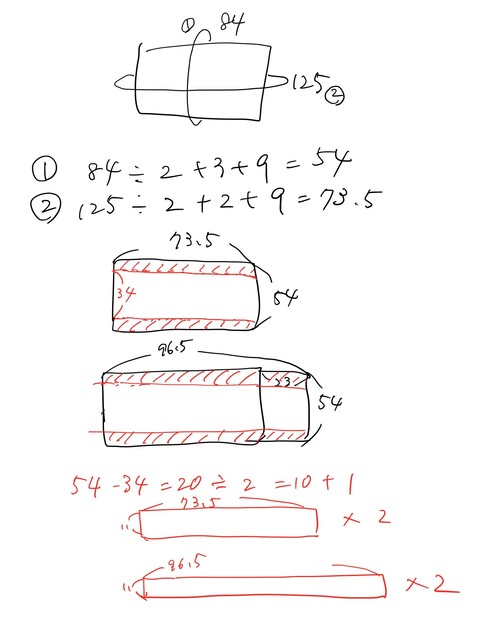 ① 84
125 ②
① 84 ÷ 2 + 3 + 9 = 54
② 125 ÷ 2 + 2 + 9 = 73.5
73.5
34
54
96.5
23
54
54 - 34 = 20 ÷ 2 = 10 + 1
73.5
11 × 2
96.5
11 × 2